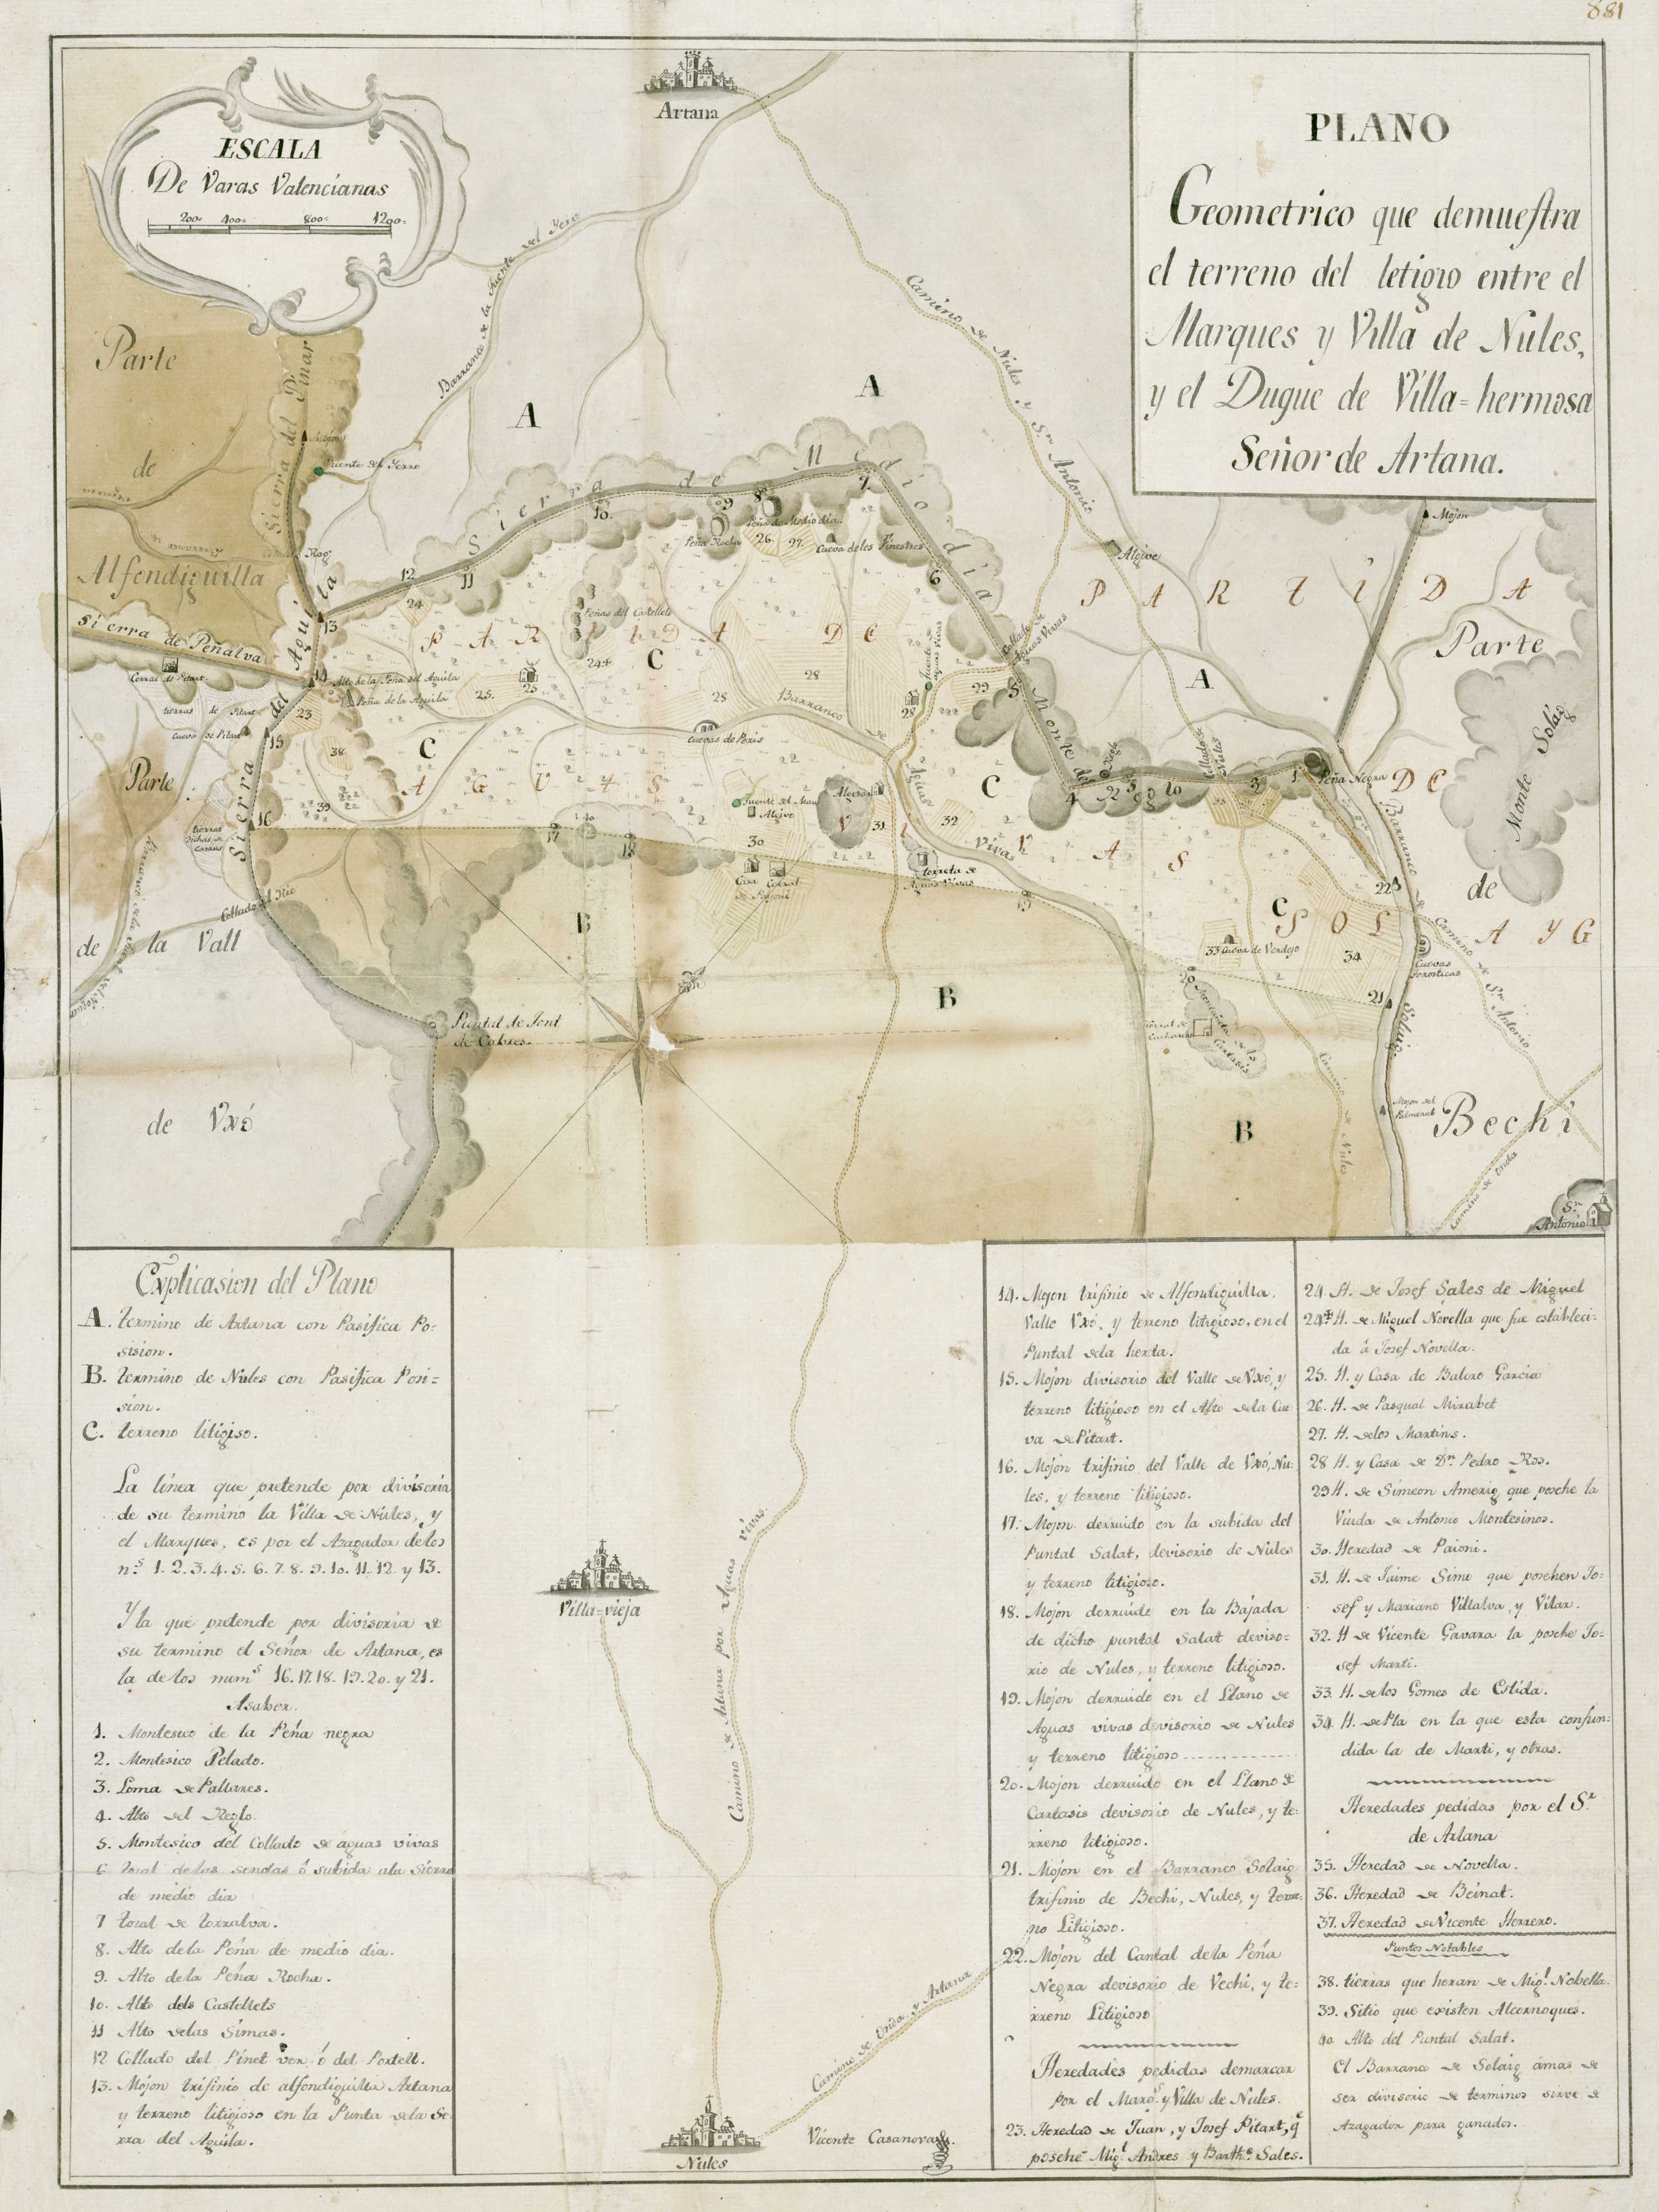 881
ESCALA
De Varas Valencianas
200. 400. 800. 1200.
Artana
PLANO
Geometrico que demuestra
el terreno del letigio entre el
Marques y Villa de Nules,
y el Duque de Villa=hermosa
Señor de Artana.
Barranco de la Fuente del Ferro
Camino de Nules y Sn. Antonio
Parte
de
Alfondiguilla
Sierra del Pinar
Mojon
Fuente del Ferro
A
A
Sierra de Medio dia
Peña Rocha
Peña de Medio dia.
Cueva deles Finestres
Algive
Mojon
PARTIDA
Parte
Sierra de Peñalva
Corral de Pitart.
tierras de Pitart
Cueva de Pitart
Alto de la Peña del Aguila
Peña de la Aguila
Peñas del Castellets
PARTIDA DE
C
A
Collado de Aguas Vivas
Fuente de Aguas Vivas
Monte del Reglo
Collado de Nules
Peña Negra
DE
Monte Solaig
Parte
C
AGUAS
Cuevas de Peris
Barranco de Aguas Vivas
Fuente del Mau
Algive
C
VIVAS
Sierra del Aguila
Casa Corral
de Paioni
torreta de
Aguas Vivas
Barranco de Solaig
de
C
SOL
AYG
33 Cueva de Verdejo
Cuevas
Camino de Sn. Antonio
de la Vall
Collado del Rio
B
B
Puntal de Font
de Cabres.
Montañeta de Cartasis
Camino de Nules
Mojon del
Palmeral
Bechi
de Vxó
B
Camino de Onda
Sn.
Antonio
Explicasion del Plano
A. termino de Artana con Pasifica Po-
sision.
B. termino de Nules con Pasifica Posi=
sion.
C. terreno litigiso.
La linea que pretende por divisoria
de su termino la Villa de Nules, y
el Marques, es por el Azagador delos
n.s 1. 2. 3. 4. 5. 6. 7. 8. 9. 10. 11. 12. y 13.
Y la que pretende por divisoria de
su termino el Señor de Artana, es
la de los nums 16. 17. 18. 19. 20. y 21.
Asaber.
1. Montesico de la Peña negra
2. Montesico Pelado.
3. Loma de Pallares.
4. Alto del Reglo.
5. Montesico del Collado de aguas vivas
6. Tosal delas sendas ó subida ala Sierra
de medio dia
7 tosal de torralva.
8. Alto dela Peña de medio dia.
9. Alto dela Peña Rocha.
10. Alto dels Castellets
11 Alto delas Simas.
12 Collado del Pinet ver ó del Portell.
13. Mojon trifinio de alfondiguilla Artana
y terreno litigioso en la Punta dela Se-
rra del Aguila.
Villa=vieja
Camino de Artana por Aguas vivas.
Camino de Onda y Artana
Nules
Vicente Casanova
14. Mojon trifinio de Alfondiguilla.
Valle Vxó, y terreno litigioso, en el
Puntal dela herta.
15. Mojon divisorio del Valle de Vxó, y
terreno litigioso en el Alto dela Cue
va de Pitart.
16. Mojon trifinio del Valle de Vxó, Nu-
les, y terreno litigioso.
17. Mojon derruido en la subida del
Puntal Salat, devisorio de Nules
y terreno litigioso.
18. Mojon derruido en la Bajada
de dicho puntal Salat deviso=
rio de Nules, y terreno litigioso.
19. Mojon derruido en el Llano de
Aguas vivas devisorio de Nules
y terreno litigioso
20. Mojon derruido en el Llano de
Cartasis devisorio de Nules, y te-
rreno litigioso.
21. Mojon en el Barranco Solaig
trifinio de Bechi, Nules, y terre-
no Litigioso.
22. Mojon del Cantal dela Peña
Negra devisorio de Vechi, y te-
rreno Litigioso
Heredades pedidas demarcar
por el Marqs. y Villa de Nules.
23. Heredad de Juan, y Josef Pitart, qe
poseheˉ Migl. Andres y Barthe. Sales.
24. H. de Josef Sales de Miguel
24✝ H. de Miguel Novella que fue estableci=
da á Josef Novella.
25. H. y Casa de Balero Garcia
26. H. de Pasqual Mirabet
27. H. delos Martins.
28 H. y Casa de Dn. Pedro Ros.
29 H. de Simeon Amerig, que posehe la
Viuda de Antonio Montesinos.
30. Heredad de Paioni.
31. H. de Jaime Simo que posehen Jo=
sef y Mariano Villalva, y Vilar.
32. H de Vicente Gavara la posehe Jo=
sef Marti.
33. H. delos Gomes de Eslida.
34. H. de Pla en la que esta confun=
dida la de Marti, y otras.
Heredades pedidas por el Sr.
de Artana
35. Heredad de Novella.
36. Heredad de Beinat.
37. Heredad de Vicente Herrero.
Puntos Notables
38. tierras que heran de Migl. Nobella.
39. Sitio que existen Alcornoques.
40 Alto del Puntal Salat.
El Barranco de Solaig amas de
ser divisorio de terminos sirve de
Azagador para ganados.